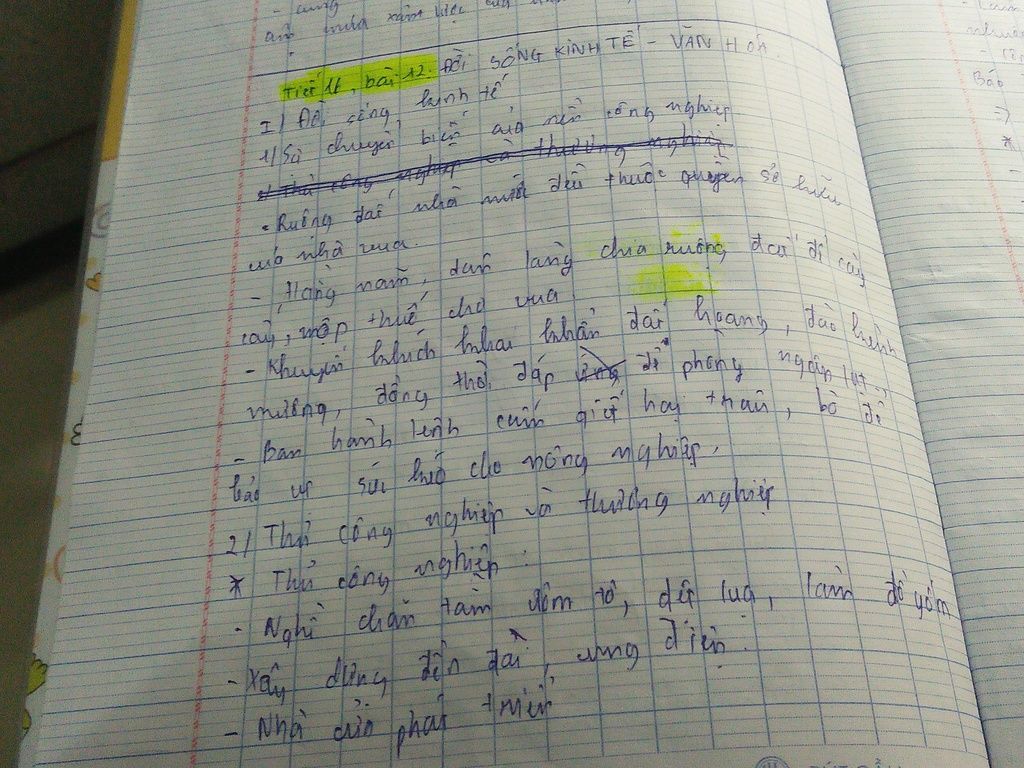 Tiết 16, bài 12. ĐỜI SỐNG KINH TẾ - VĂN HÓA.
I/ Đời sống kinh tế
1/ Sự chuyển biến của nền nông nghiệp
- Ruộng đất nhà nước đều thuộc quyền sở hữu
của nhà vua.
- Hàng năm, dân làng chia ruộng đất để cày
cấy, nộp thuế cho vua
- Khuyến khích khai khẩn đất hoang, đào kênh
mương, đồng thời đắp đê phòng ngập lụt
- Ban hành lệnh cấm giết hại trâu, bò để
bảo vệ sức kéo cho nông nghiệp.
2/ Thủ công nghiệp và thương nghiệp
* Thủ công nghiệp:
- Nghề chăn tằm ươm tơ, dệt lụa, làm đồ gốm
- Xây dựng đền đài, cung điện.
- Nhà cửa phát triển